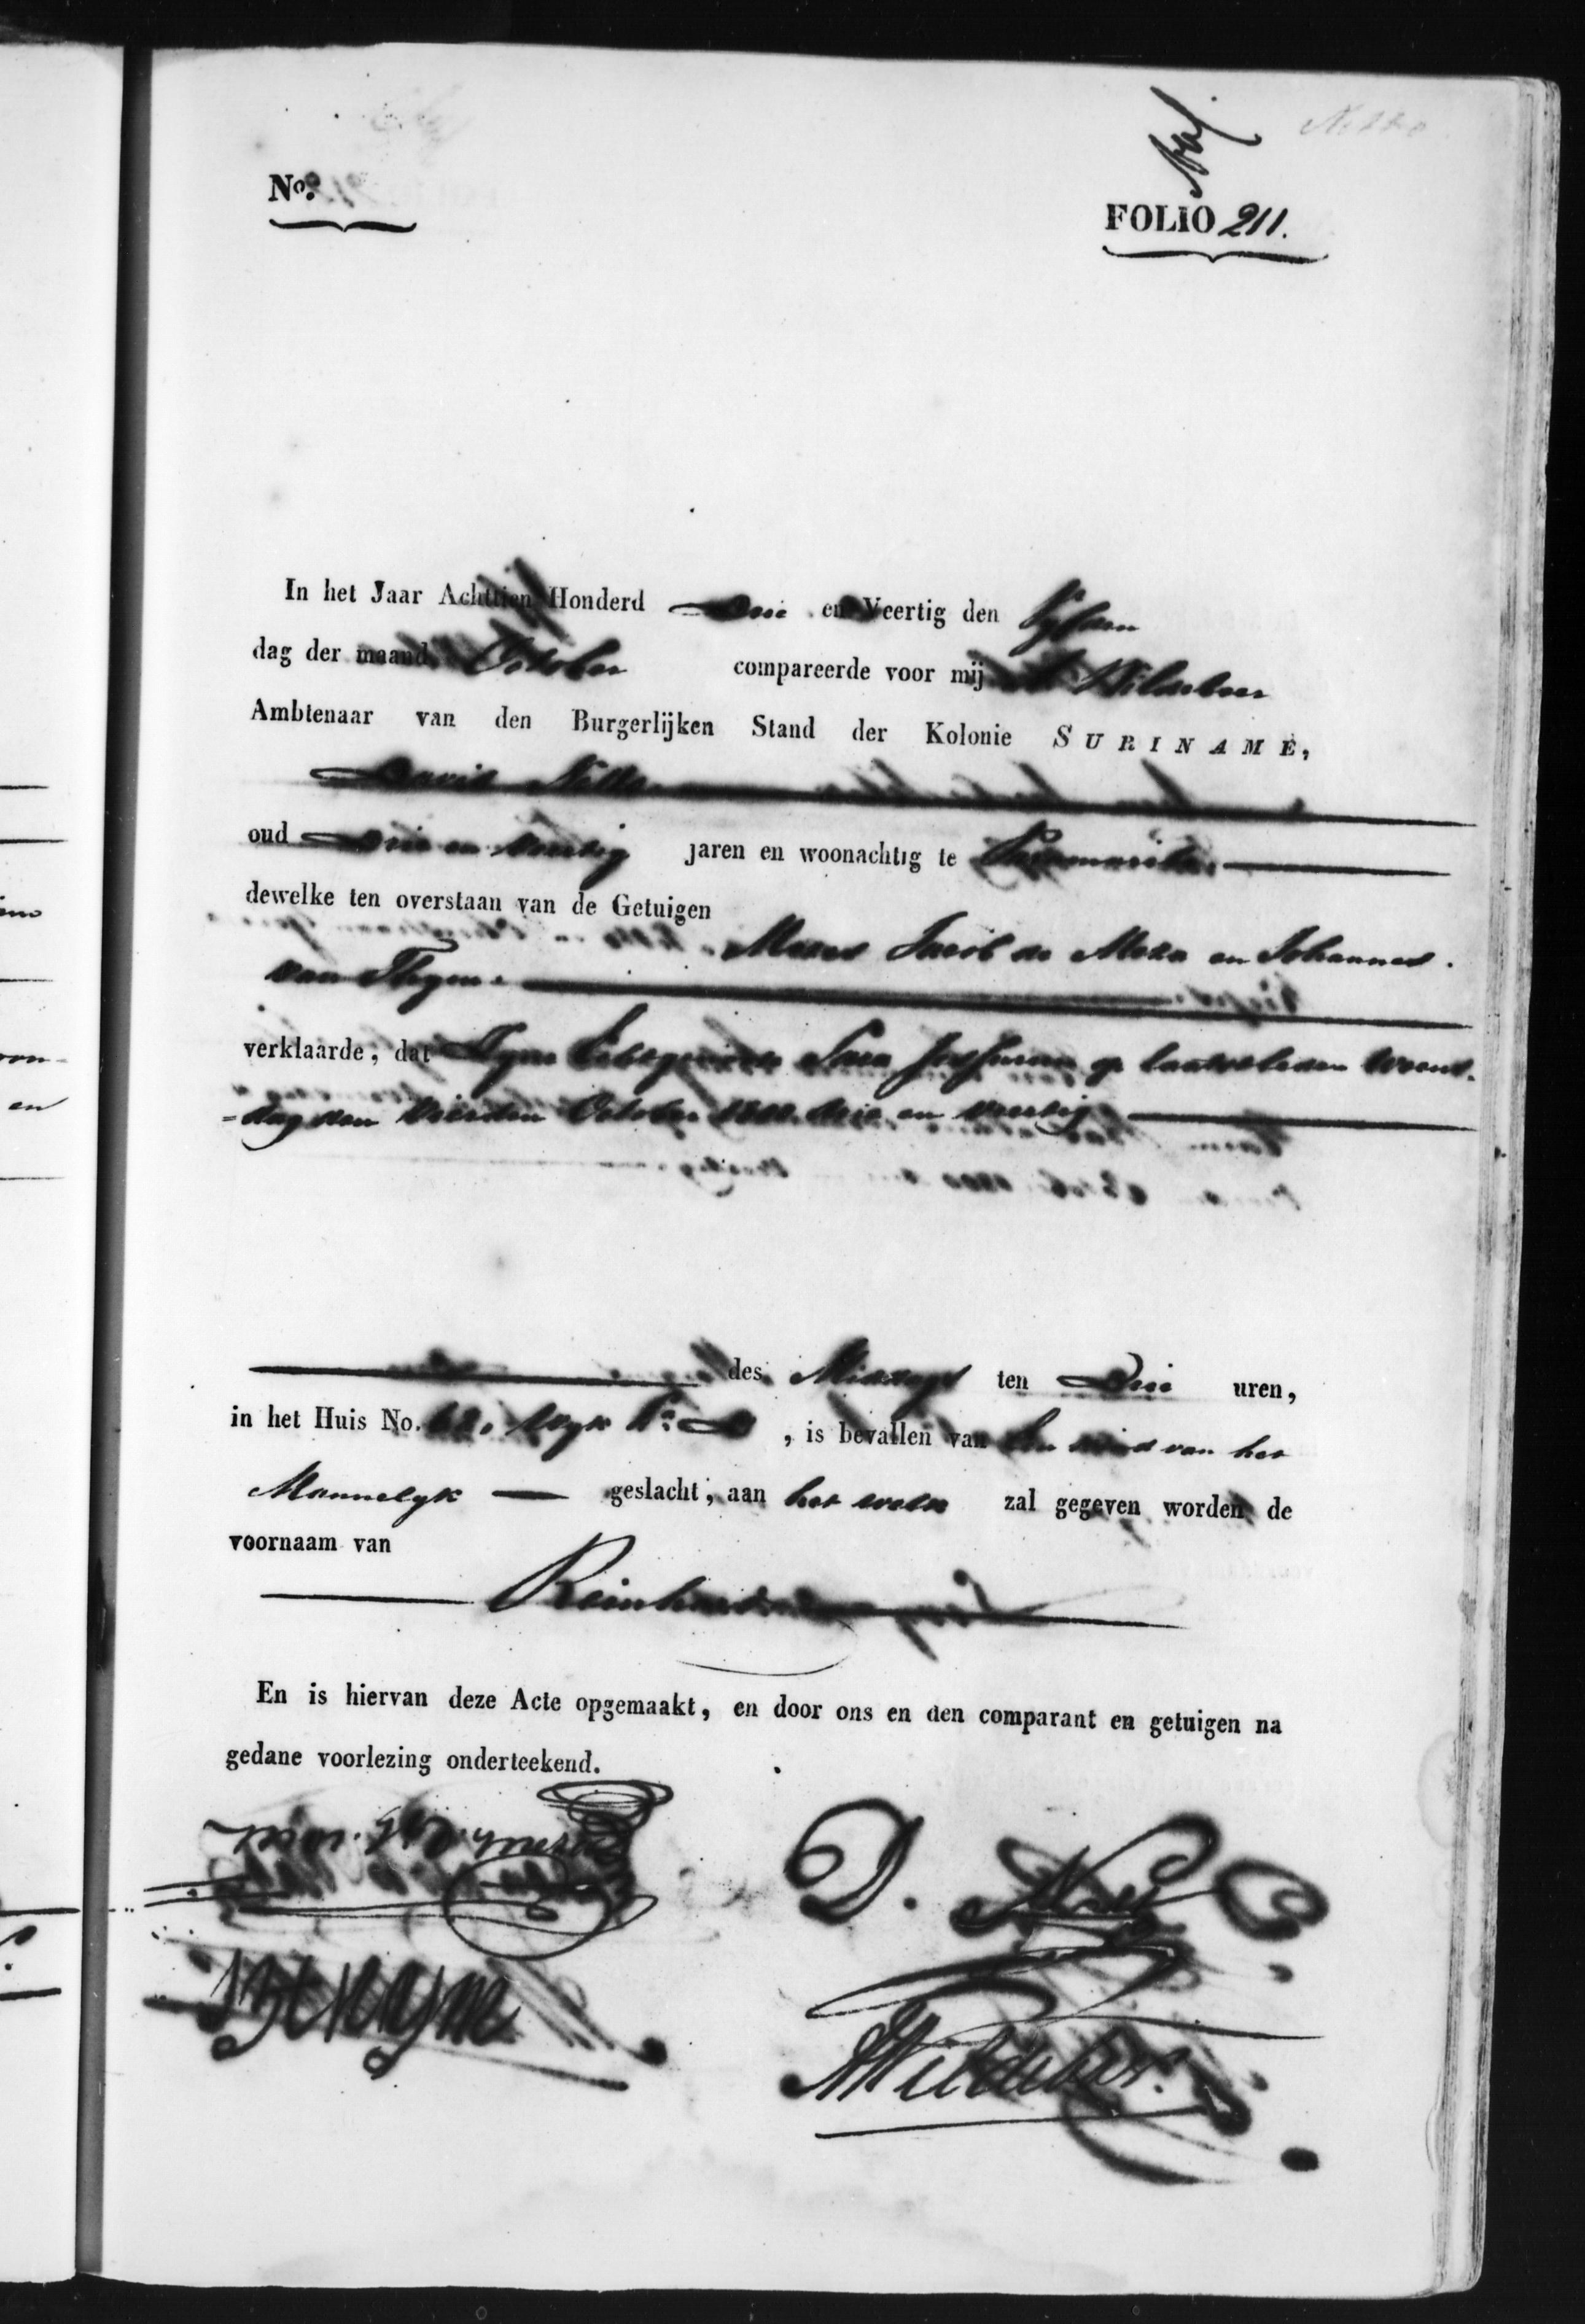 No.
FOLIO 211.
In het Jaar Achttien Honderd Drie en Veertig den Vyfden
dag der maand October compareerde voor mij Wildeboer
Ambtenaar van den Burgerlijken Stand der Kolonie SURINAME,
David Netto
oud Drie en veertig jaren en woonachtig te Paramaribo
dewelke ten overstaan van de Getuigen
Mozes Jacob de Meza en Johannes
van Thym
verklaarde, dat Zyne Echtgenoote Sara op laatstleden Woens-
-dag den vierden October 1800 drie en veertig
des Middags ten Drie uren,
in het Huis No. Wyk La D, is bevallen van Een kind van het
Mannelyk geslacht, aan het welk zal gegeven worden de
voornaam van
Reinhard
En is hiervan deze Acte opgemaakt, en door ons en den comparant en getuigen na
gedane voorlezing onderteekend.
D. Netto
Wildeboer